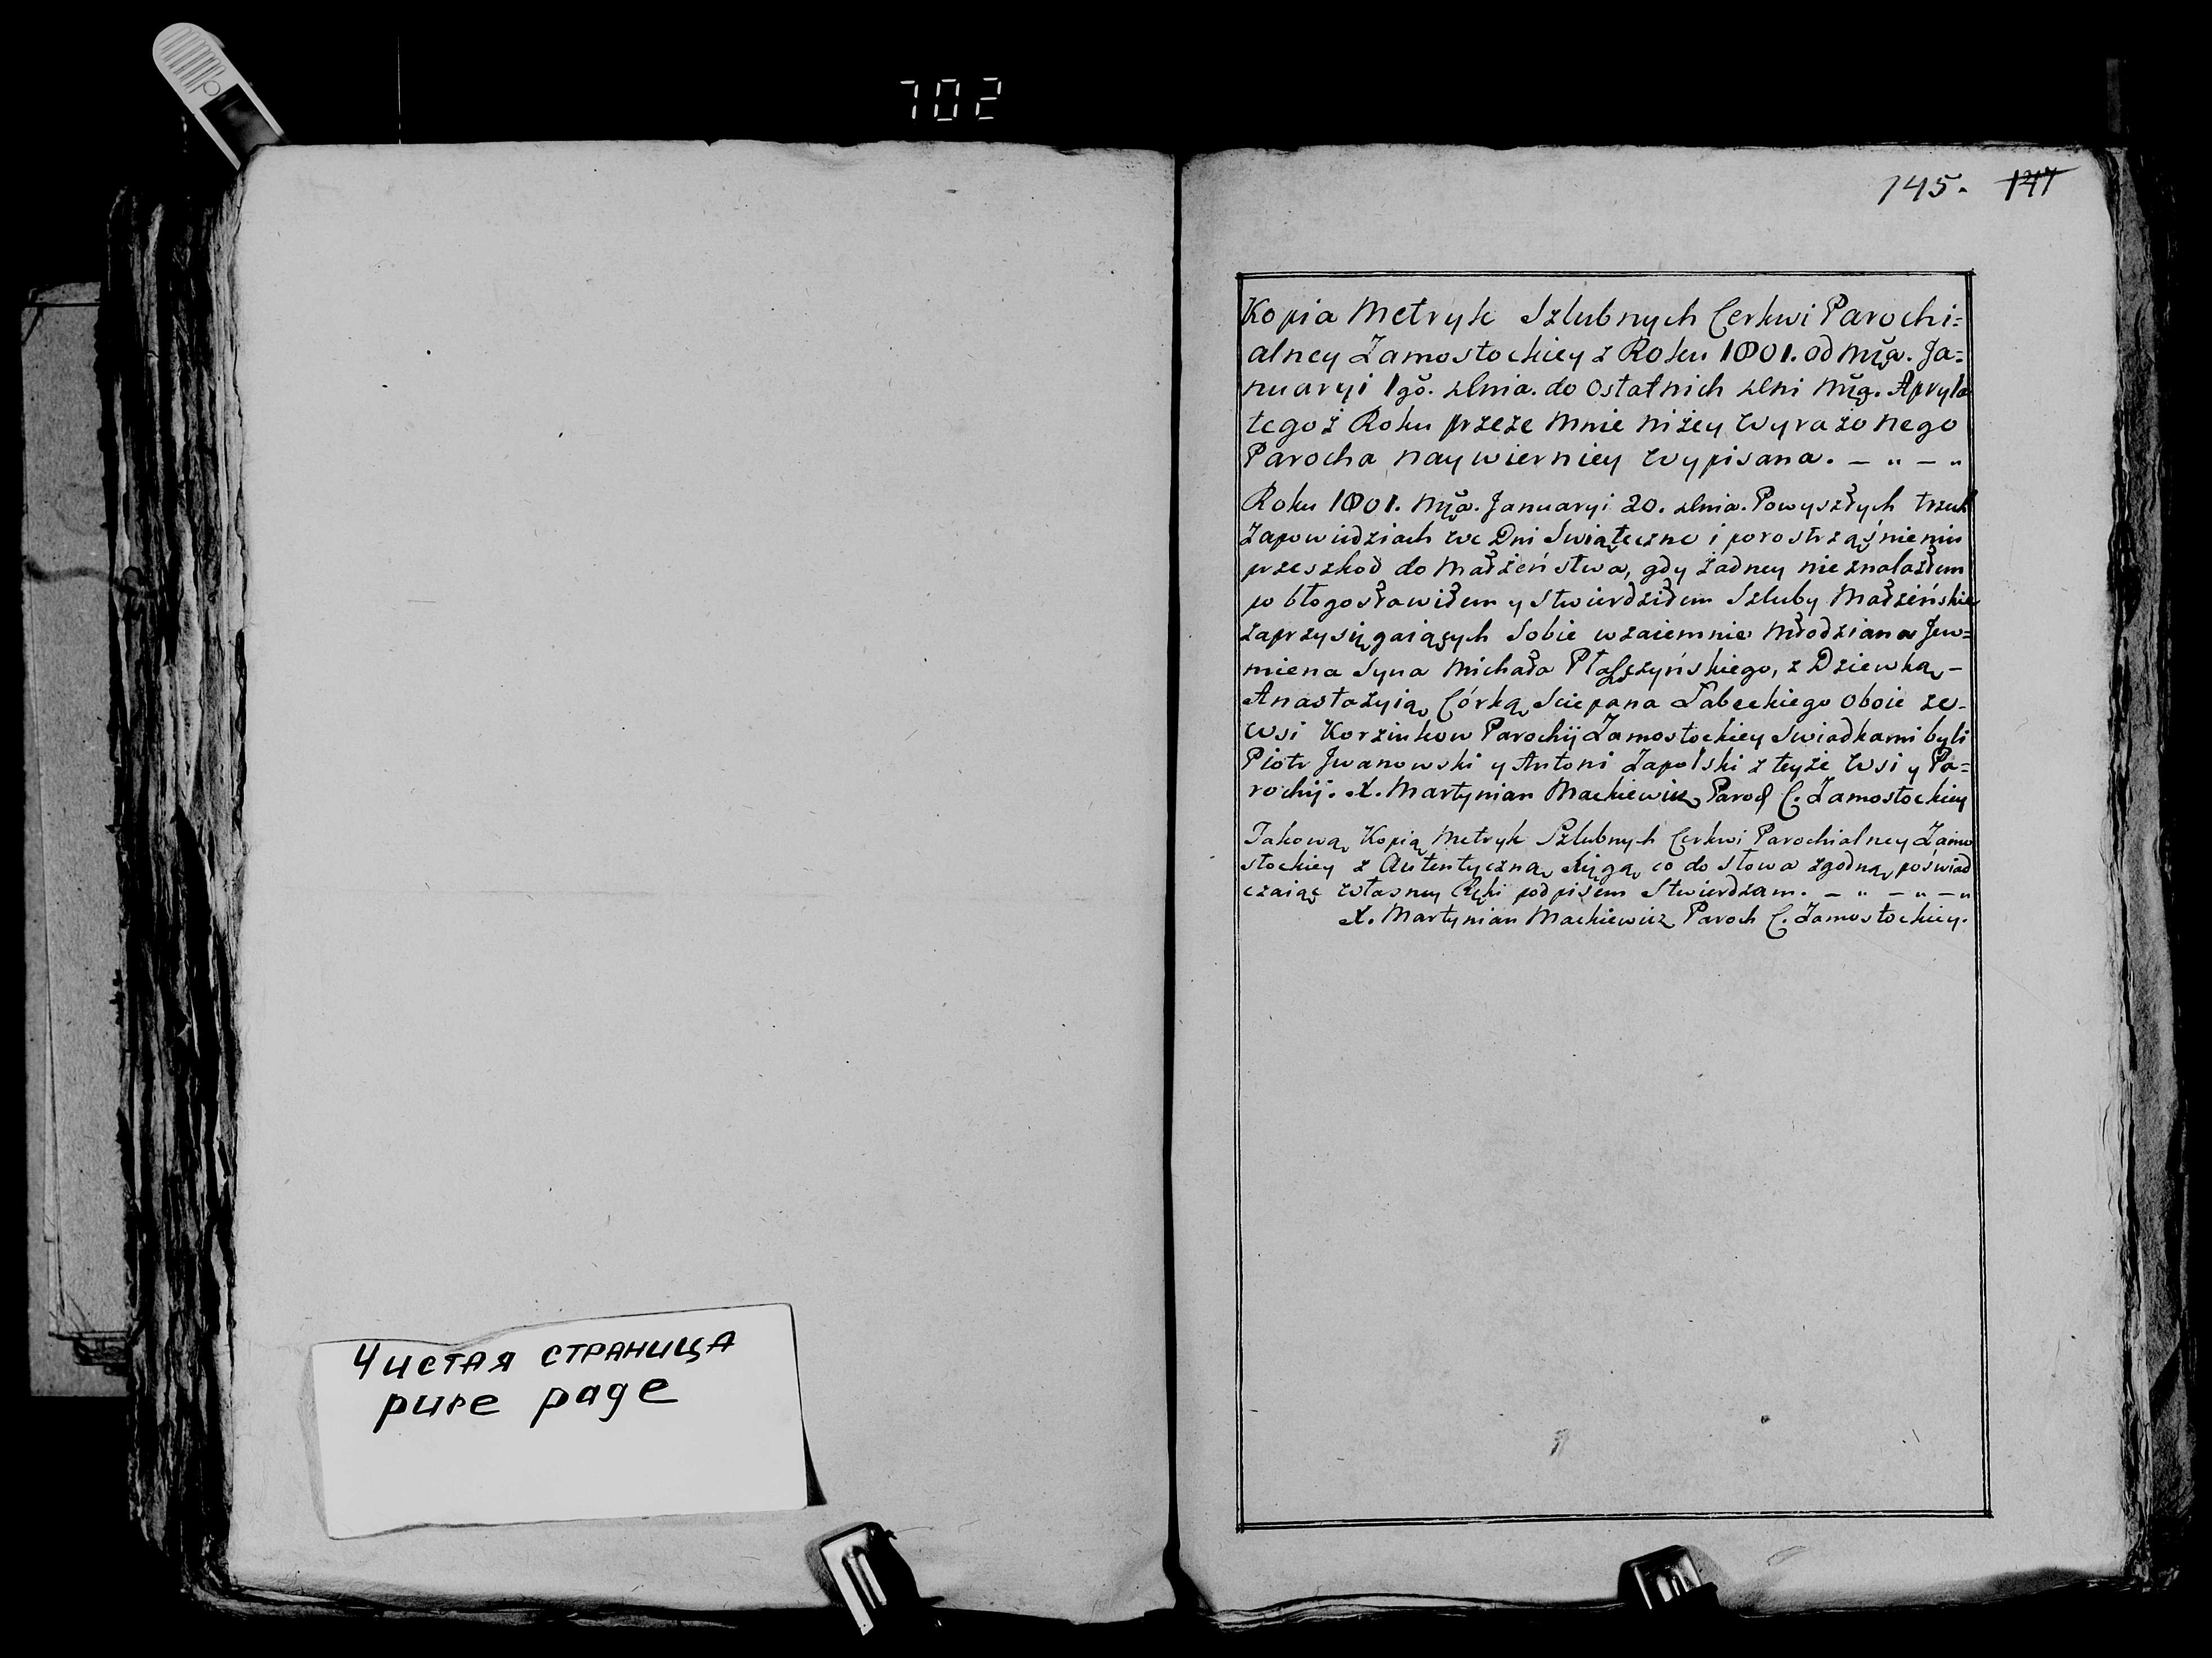 702
145. 147
Kopia Metryk Szlubnych Cerkwi Parochi=
alney Zamostockiey z Roku 1801. od Mca. Ja=
nuaryi 1go. dnia. do ostatnich dni Mca. Apryla
tegoż Roku przeze mnie niżey wyrażonego
Parocha naywierniey wypisana. – " – "
Roku 1801. Mca. Januaryi 20. dnia. Powyszłych trzech
Zapowiedziach we Dni Swiąteczne i porostrząśnieniu
przeszkod do małżeństwa, gdy żadney nieznalazłem
pobłogosławiłem y stwierdziłem Szluby Małżeńskie
zaprzysięgaiących sobie wzaiemnie Młodziana Jew=
miena Syna Michała Płaszczyńskiego, z Dziewką –
Anastazyią Córką Sciepana Łabeckiego oboie ze-
wsi Korzinkow Parochij Zamostockiey Swiadkami byli
Piotr Jwanowski y Antoni Zapolski z teyże Wsi y Pa=
rochij. X. Martynian Mackiewicz Paroch C. Zamostockiey
Takową Kopią Metryk Szlubnych Cerkwi Parochialney Zamo
stockiey z Autentyczną Xięgą co do słowa zgodną poswiad
czaiąc własney Ręki podpisem stwierdzam. – " – " – "
X. Martynian Mackiewicz Paroch C. Zamostockiey.
Чистая страница
pure page